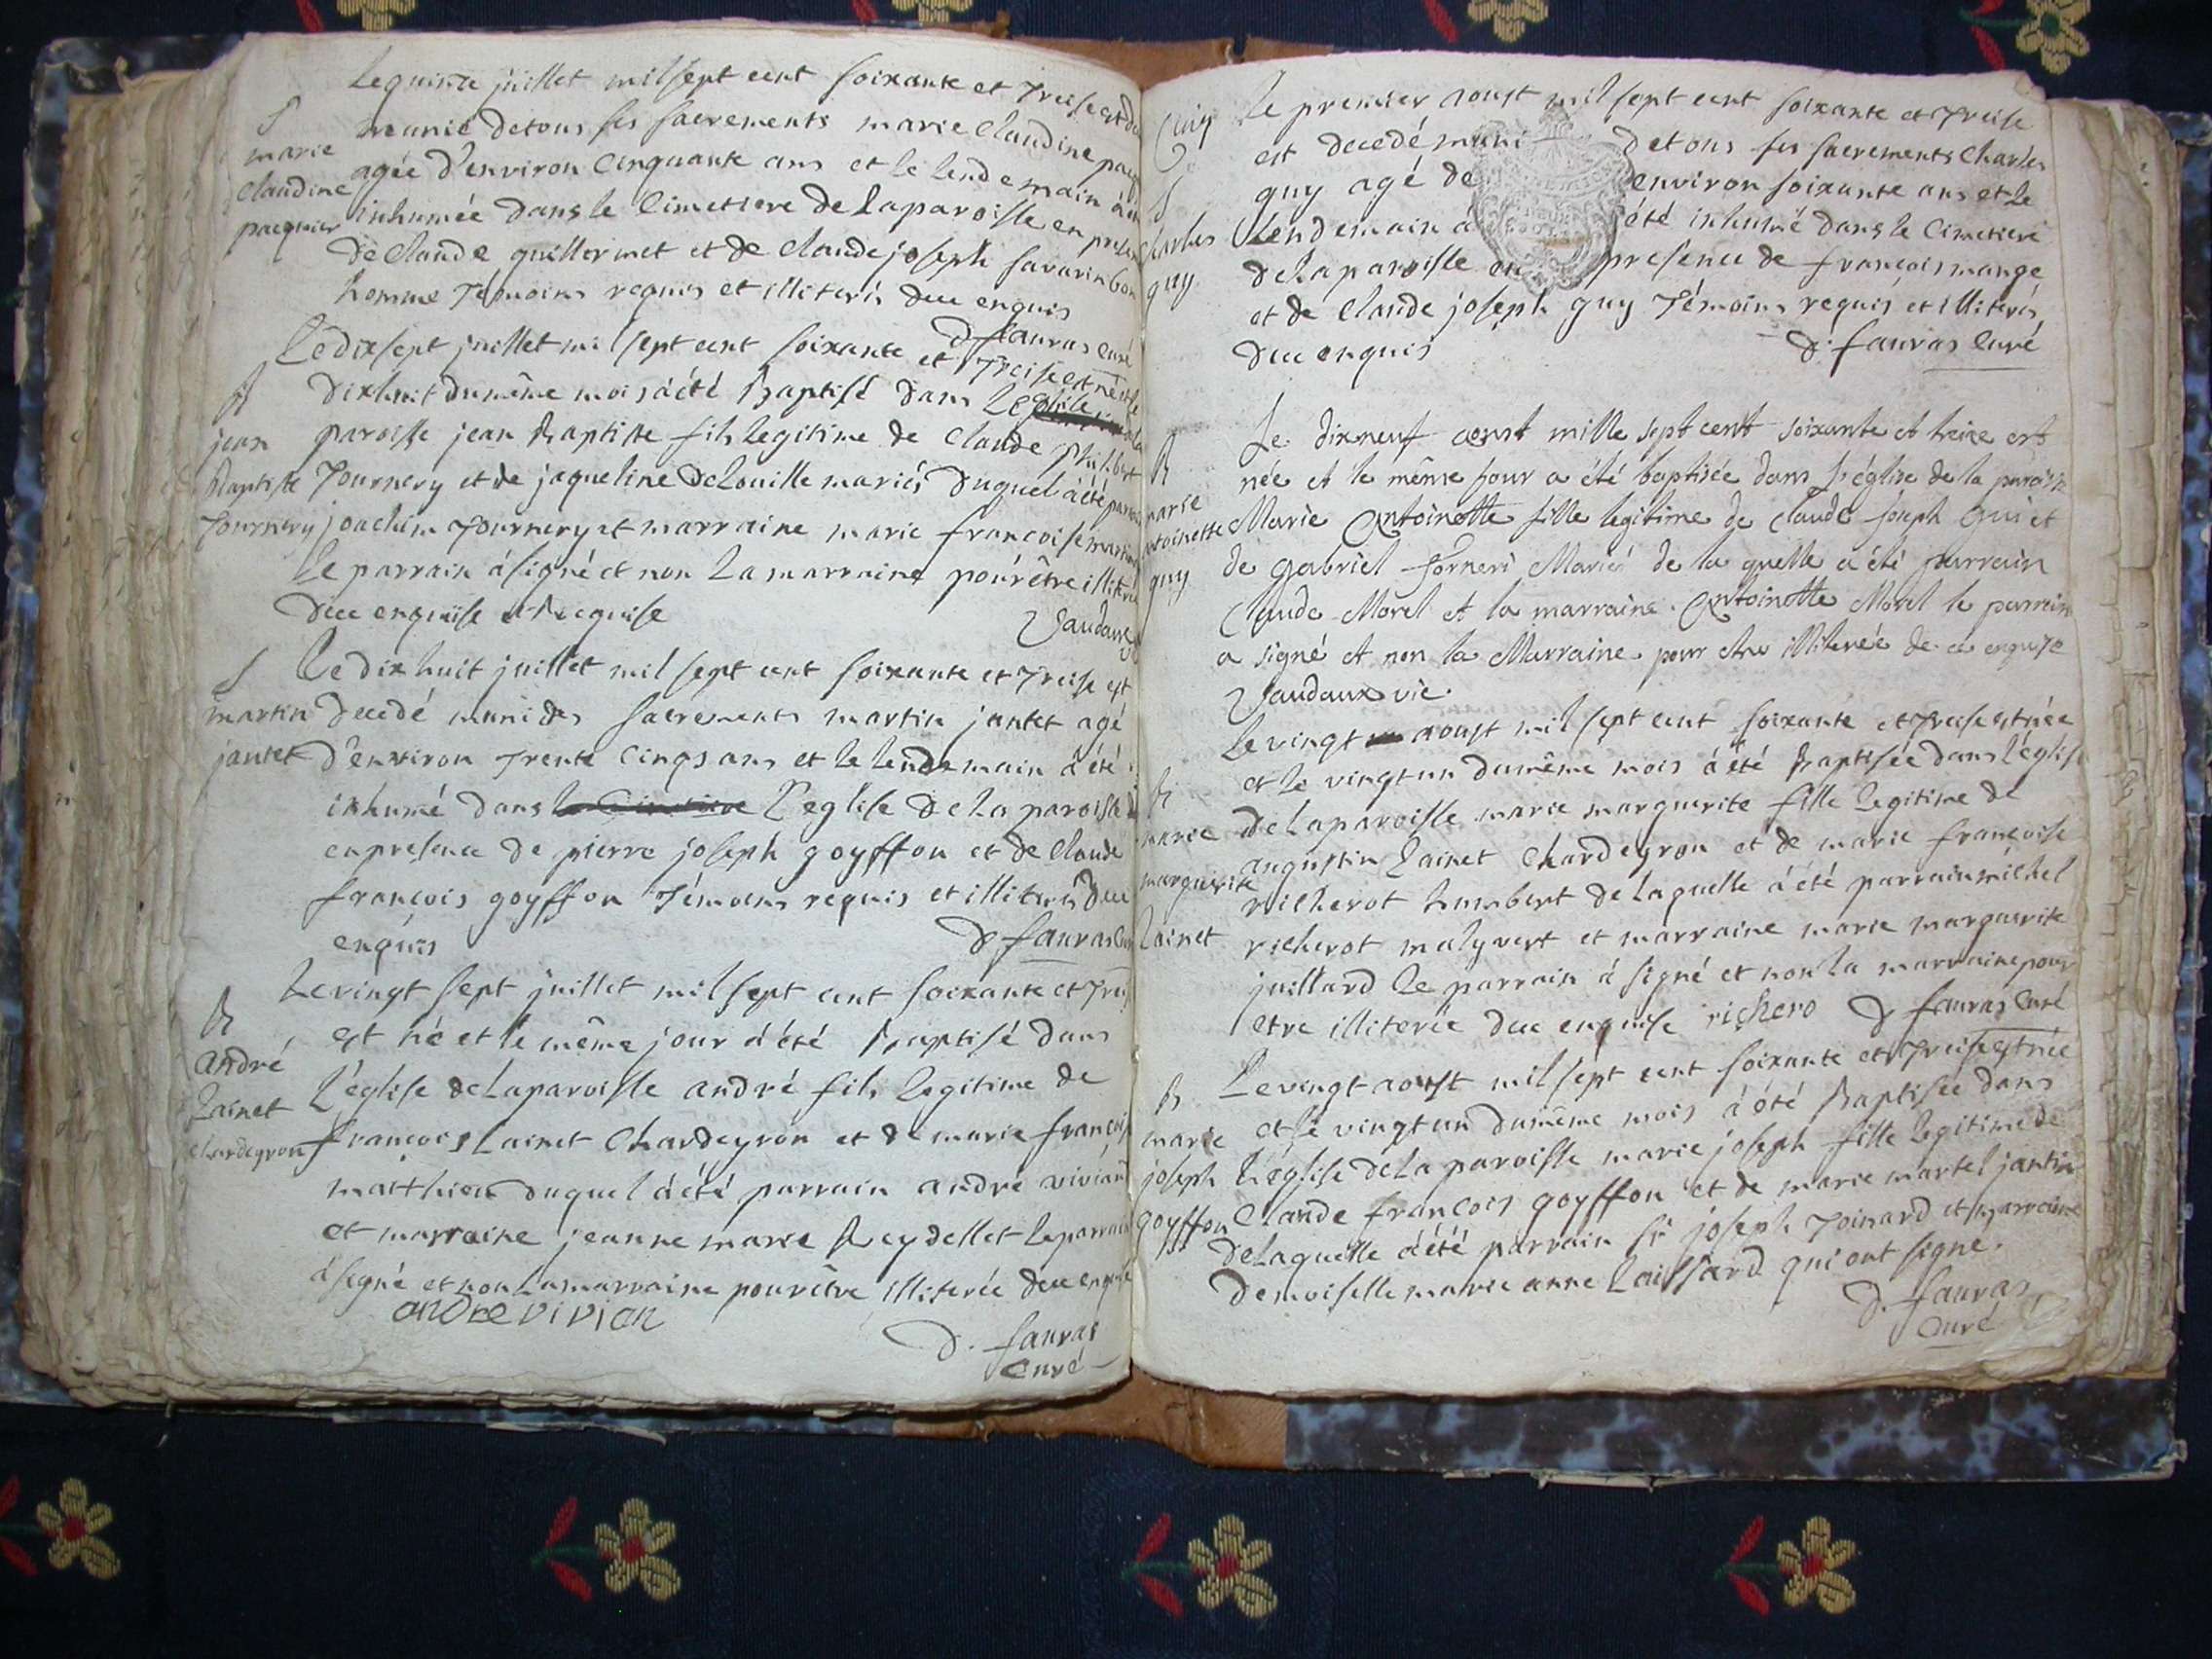 Le quinze juillet mil sept cent soixante et treise est
munie de tous ses sacrements marie Claudine
S
marie
Claudine
pacquier
agée d'environ Cinquante ans et le lendemain à
inhumée dans le Cimetiere de la paroisse en
de Claude guillermet et de Claude joseph savarin bon
homme Témoins requis et illiterés dece enquis
D fauras Curé
Le dix sept juillet mil sept cent soixante et Treise est né et le
B
jean
Baptiste
Tournery
dixhuit du même mois à été Baptisé dans L'église
paroisse jean Baptiste fils legitime de Claude philibert
Tournery et de jaqueline delouille mariés duquel à été
joachim Tournery et marraine marie francoise
le parrain à signé et non La marraine pour être
dece enquise et Requise
Vaudaux
S
martin
jantet
Le dix huit juillet mil sept cent soixante et Treise est
decedé muni des sacrements martin jantet agé
d'environ Trente Cinqs ans et le lendemain à été
inhumé dans L'eglise de la paroisse
en presence de pierre joseph goyffon et de Claude
françois goyffon Témoins requis et illiterés dece
enquis
D fauras
Le vingt sept juillet mil sept cent soixante et
B
andré
Lainet
Chardeyron
est né et le même jour à été Baptisé dans
L'église de La paroisse andré fils legitime de
françois Lainet Chardeyron et de marie
matthieu duquel à été parrain andré vivian
et marraine jeanne marie Reydellet le parrain
à signé et non La marraine pour être illiterée dece enquise
andre vivian
D. fauras
Curé
Le premier aoust mil sept cent soixante et Treise
S
Charles
guy
est decedé muni de tous ses sacrements Charles
guy agé de environ soixante ans et le
Lendemain à été inhumé dans le Cimetiere
de la paroisse en presence de françois mange
et de Claude joseph guy Témoins requis et illiterés
dece enquis
D. fauras Curé
Le dixneuf aoust mille sept cent soixante et treize est
B
marie
antoinette
guy
née et le même jour a été baptisée dans l'église de la paroisse
Marie Antoinette fille legitime de Claude joseph Gui et
de gabriel forneri Mariés de la quelle a été parrain
Claude Morel et la marraine Antoinette Morel le parrain
a signé et non la Marraine pour etre illiterée de ce enquise
Vaudaux vic.
Le vingt aoust mil sept cent soixante et Treise est née
B
marie
marguerite
Lainet
et le vingt un du même mois à été Baptisée dans l'église
de La paroisse marie marguerite fille Legitime de
augustin Lainet Chardeyron et de marie françoise
richerot humbert de Laquelle à été parrain michel
richerot malyvert et marraine marie marguerite
juillard le parrain à signé et non la marraine pour
etre illiterée dece enquise richero D fauras Curé
Le vingt aoust mil sept cent soixante et Treise est née
B
marie
joseph
goyffon
et le vingt un du même mois à été Baptisée dans
L'église de La paroisse marie joseph fille Legitime de
Claude françois goyffon et de marie martel jantin
de Laquelle à été parrain Sr joseph Toinard et marraine
Demoiselle marie anne Laissard qui ont signé.
D. fauras
Curé